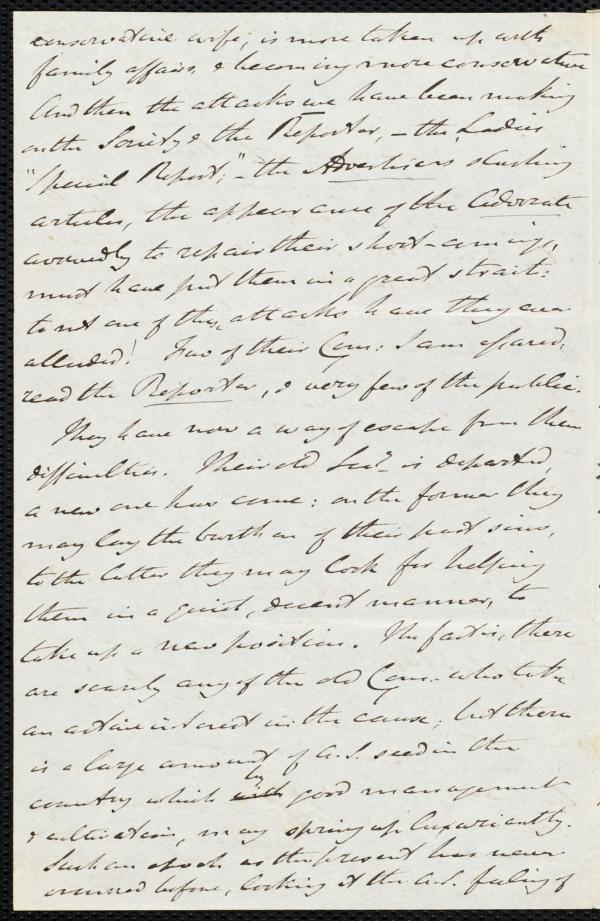 conservative wife, is more taken up with
family affairs, & becoming more conservative
And then the attacks we have been making
on the Society & the Reporter, – the Ladies
"Special Report," – the Advertisers slashing
articles, the appearance of the Advocate
avowedly to repair their short-comings,
must have put them in a great strait:
to not one of these attacks have they ever
alluded! Few of their Com: I am afraid,
read the Reporter, & very few of the public.
They have now a way of escape from their
difficulties. Their old Secy is departed,
a new one has come: on the former they
may lay the burthen of their past sins,
to the latter they may look for helping
them in a quiet, decent manner, to
take up a new position. The fact is, there
are scarcely any of the old Com: who take
an active interest in the cause; but there
is a large amount of A.S. seed in the
country which by good management
& cultivation, may spring up luxuriantly.
Such an epoch as the present has never
occurred before, looking at the A.S. feeling of